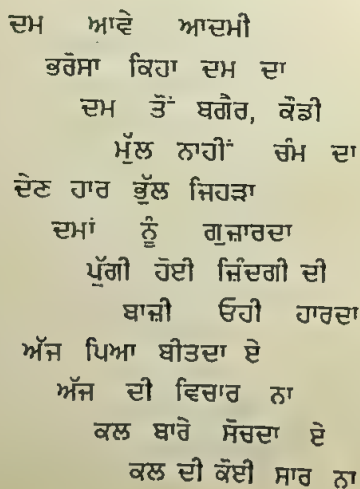 ਦਮ ਆਵੇ ਆਦਮੀ
ਭਰੋਸਾ ਕਿਹਾ ਦਮ ਦਾ
ਦਮ ਤੋਂ ਬਗੈਰ, ਕੌਡੀ
ਮੁੱਲ ਨਾਹੀਂ ਚੰਮ ਦਾ
ਦੇਣ ਹਾਰ ਭੁੱਲ ਜਿਹੜਾ
ਦਮਾਂ ਨੂੰ ਗੁਜ਼ਾਰਦਾ
ਪੁੱਗੀ ਹੋਈ ਜ਼ਿੰਦਗੀ ਦੀ
ਬਾਜ਼ੀ ਓਹੀ ਹਾਰਦਾ
ਅੱਜ ਪਿਆ ਬੀਤਦਾ ਏ
ਅੱਜ ਦੀ ਵਿਚਾਰ ਨਾ
ਕਲ ਬਾਰੇ ਸੋਚਦਾ ਏ
ਕਲ ਦੀ ਕੋਈ ਸਾਰ ਨਾ